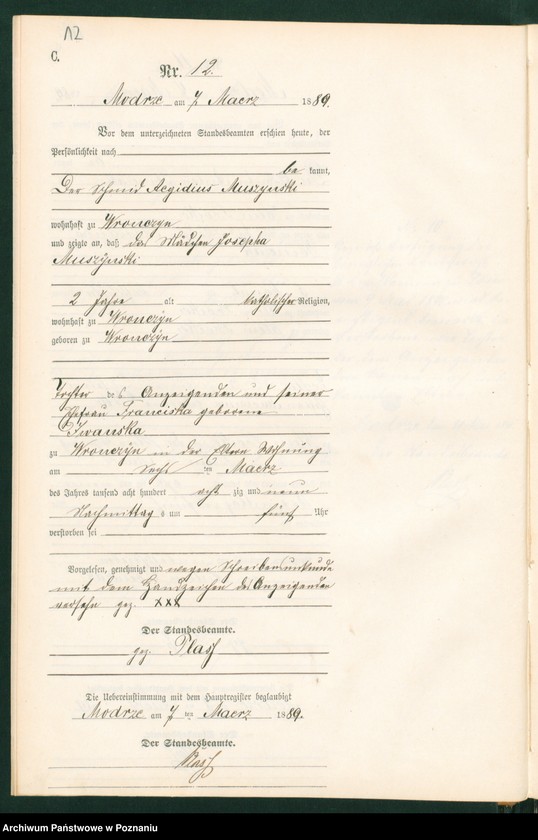 12
C.
Nr. 12.
Modrze am 7 Maerz 1889.
Vor dem unterzeichneten Standesbeamten erschien heute, der
Persönlichkeit nach
be kannt,
Der Schmid Aegidius Muszynski
wohnhaft zu Wronczyn
und zeigte an, daß das Mädchen Josepha
Muszÿnski
2 Jahre alt katholischer Religion,
wohnhaft zu Wronczÿn
geboren zu Wronczÿn
Tochter des Anzeigenden und seiner
Ehefrau Franciska geborene
Iwanska
zu Wronczÿn in der Eltern Wohnung
am sechs ten Maerz
des Jahres tausend acht hundert acht zig und neun
Nachmittag s um fünf Uhr
verstorben sei
Vorgelesen, genehmigt und wegen Schreibensunkunde
mit dem Handzeichen des Anzeigenden
versehn gez. XXX
Der Standesbeamte.
gez.
Die Uebereinstimmung mit dem Hauptregister beglaubigt
Modrze am 7 ten Maerz 1889.
Der Standesbeamte.
Archiwum Państwowe w Poznaniu